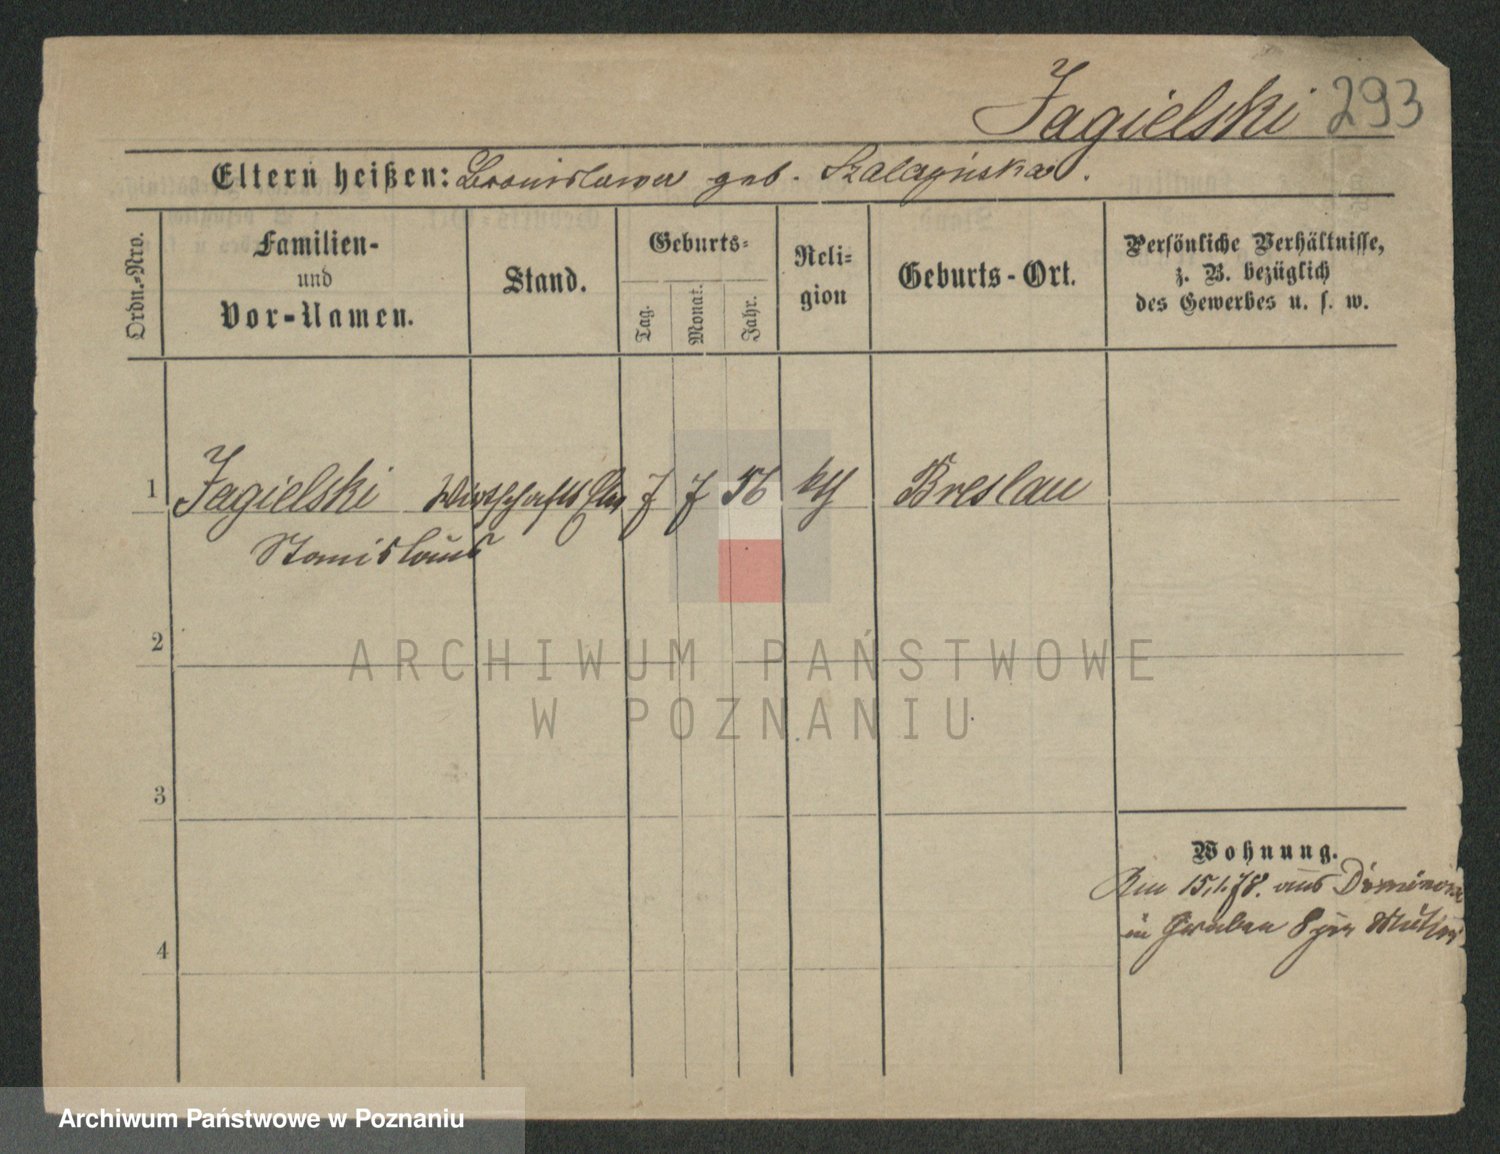 Jagielski 293
Eltern heißen: Bronislawa geb. Szalczynska.
Ordn.-Nro.
Familien-
und
Vor-Namen.
Stand.
Geburts-
Tag.
Monat.
Jahr.
Reli-
gion
Geburts-Ort.
Persönliche Verhältnisse,
z. B. bezüglich
des Gewerbes u. s. w.
1 Jagielski 7 7 56 kth Breslau
Stanislaus
2
3
4
Wohnung.
Am 15/1.78. aus
in Graben 8
ARCHIWUM PAŃSTWOWE
W POZNANIU
Archiwum Państwowe w Poznaniu